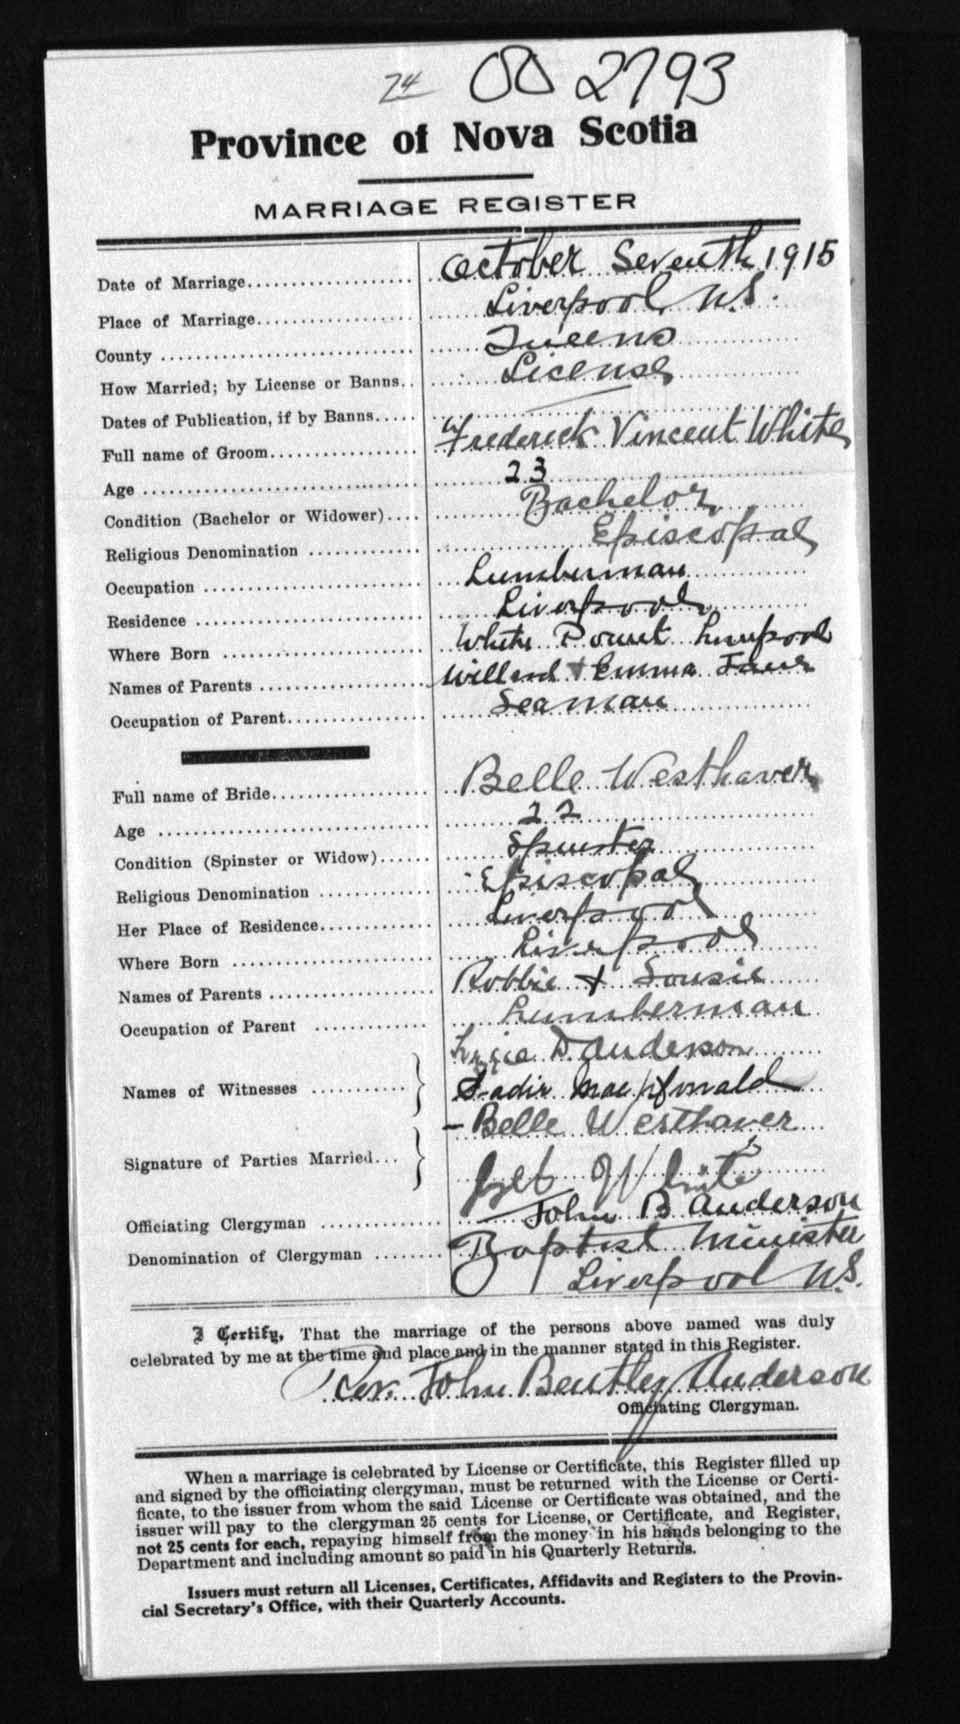 74 002793
Province of Nova Scotia
MARRIAGE REGISTER
Date of Marriage October Seventh 1915
Place of Marriage Liverpool N.S.
County Queens
How Married; by License or Banns License
Dates of Publication, if by Banns
Full name of Groom Frederick Vincent White
Age 23
Condition (Bachelor or Widower) Bachelor
Religious Denomination Episcopal
Occupation Lumberman
Residence Liverpool
Where Born White Point Liverpool
Names of Parents Willard & Emma Jane
Occupation of Parent Seaman
Full name of Bride Belle Westhaver
Age 22
Condition (Spinster or Widow) Spinster
Religious Denomination Episcopal
Her Place of Residence Liverpool
Where Born Liverpool
Names of Parents Robbie & Sousie
Occupation of Parent Lumberman
Lizzie D Anderson
Names of Witnesses Sadie MacDonald
Belle Westhaver
Signature of Parties Married White
Officiating Clergyman John B Anderson
Denomination of Clergyman Baptist Minister
Liverpool N.S.
I Certify, That the marriage of the persons above named was duly
celebrated by me at the time and place and in the manner stated in this Register.
Rev. John Bentley Anderson
Officiating Clergyman.
When a marriage is celebrated by License or Certificate, this Register filled up
and signed by the officiating clergyman, must be returned with the License or Certi-
ficate, to the issuer from whom the said License or Certificate was obtained, and the
issuer will pay to the clergyman 25 cents for License, or Certificate, and Register,
not 25 cents for each, repaying himself from the money in his hands belonging to the
Department and including amount so paid in his Quarterly Returns.
Issuers must return all Licenses, Certificates, Affidavits and Registers to the Provin-
cial Secretary's Office, with their Quarterly Accounts.